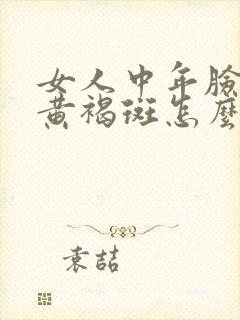 女人中年臉
黃褐斑怎麼
袁喆